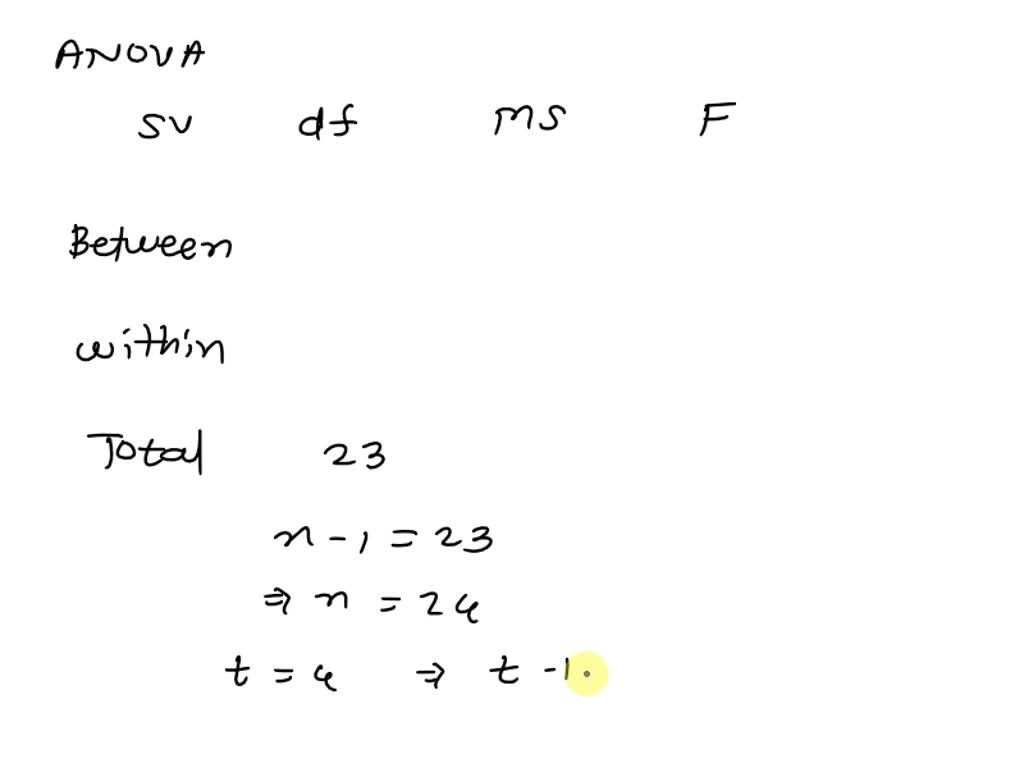 ANOVA
SV df MS F
Between
within
Total 23
n - 1 = 23
⇒ n = 24
t = 4 ⇒ t - 1